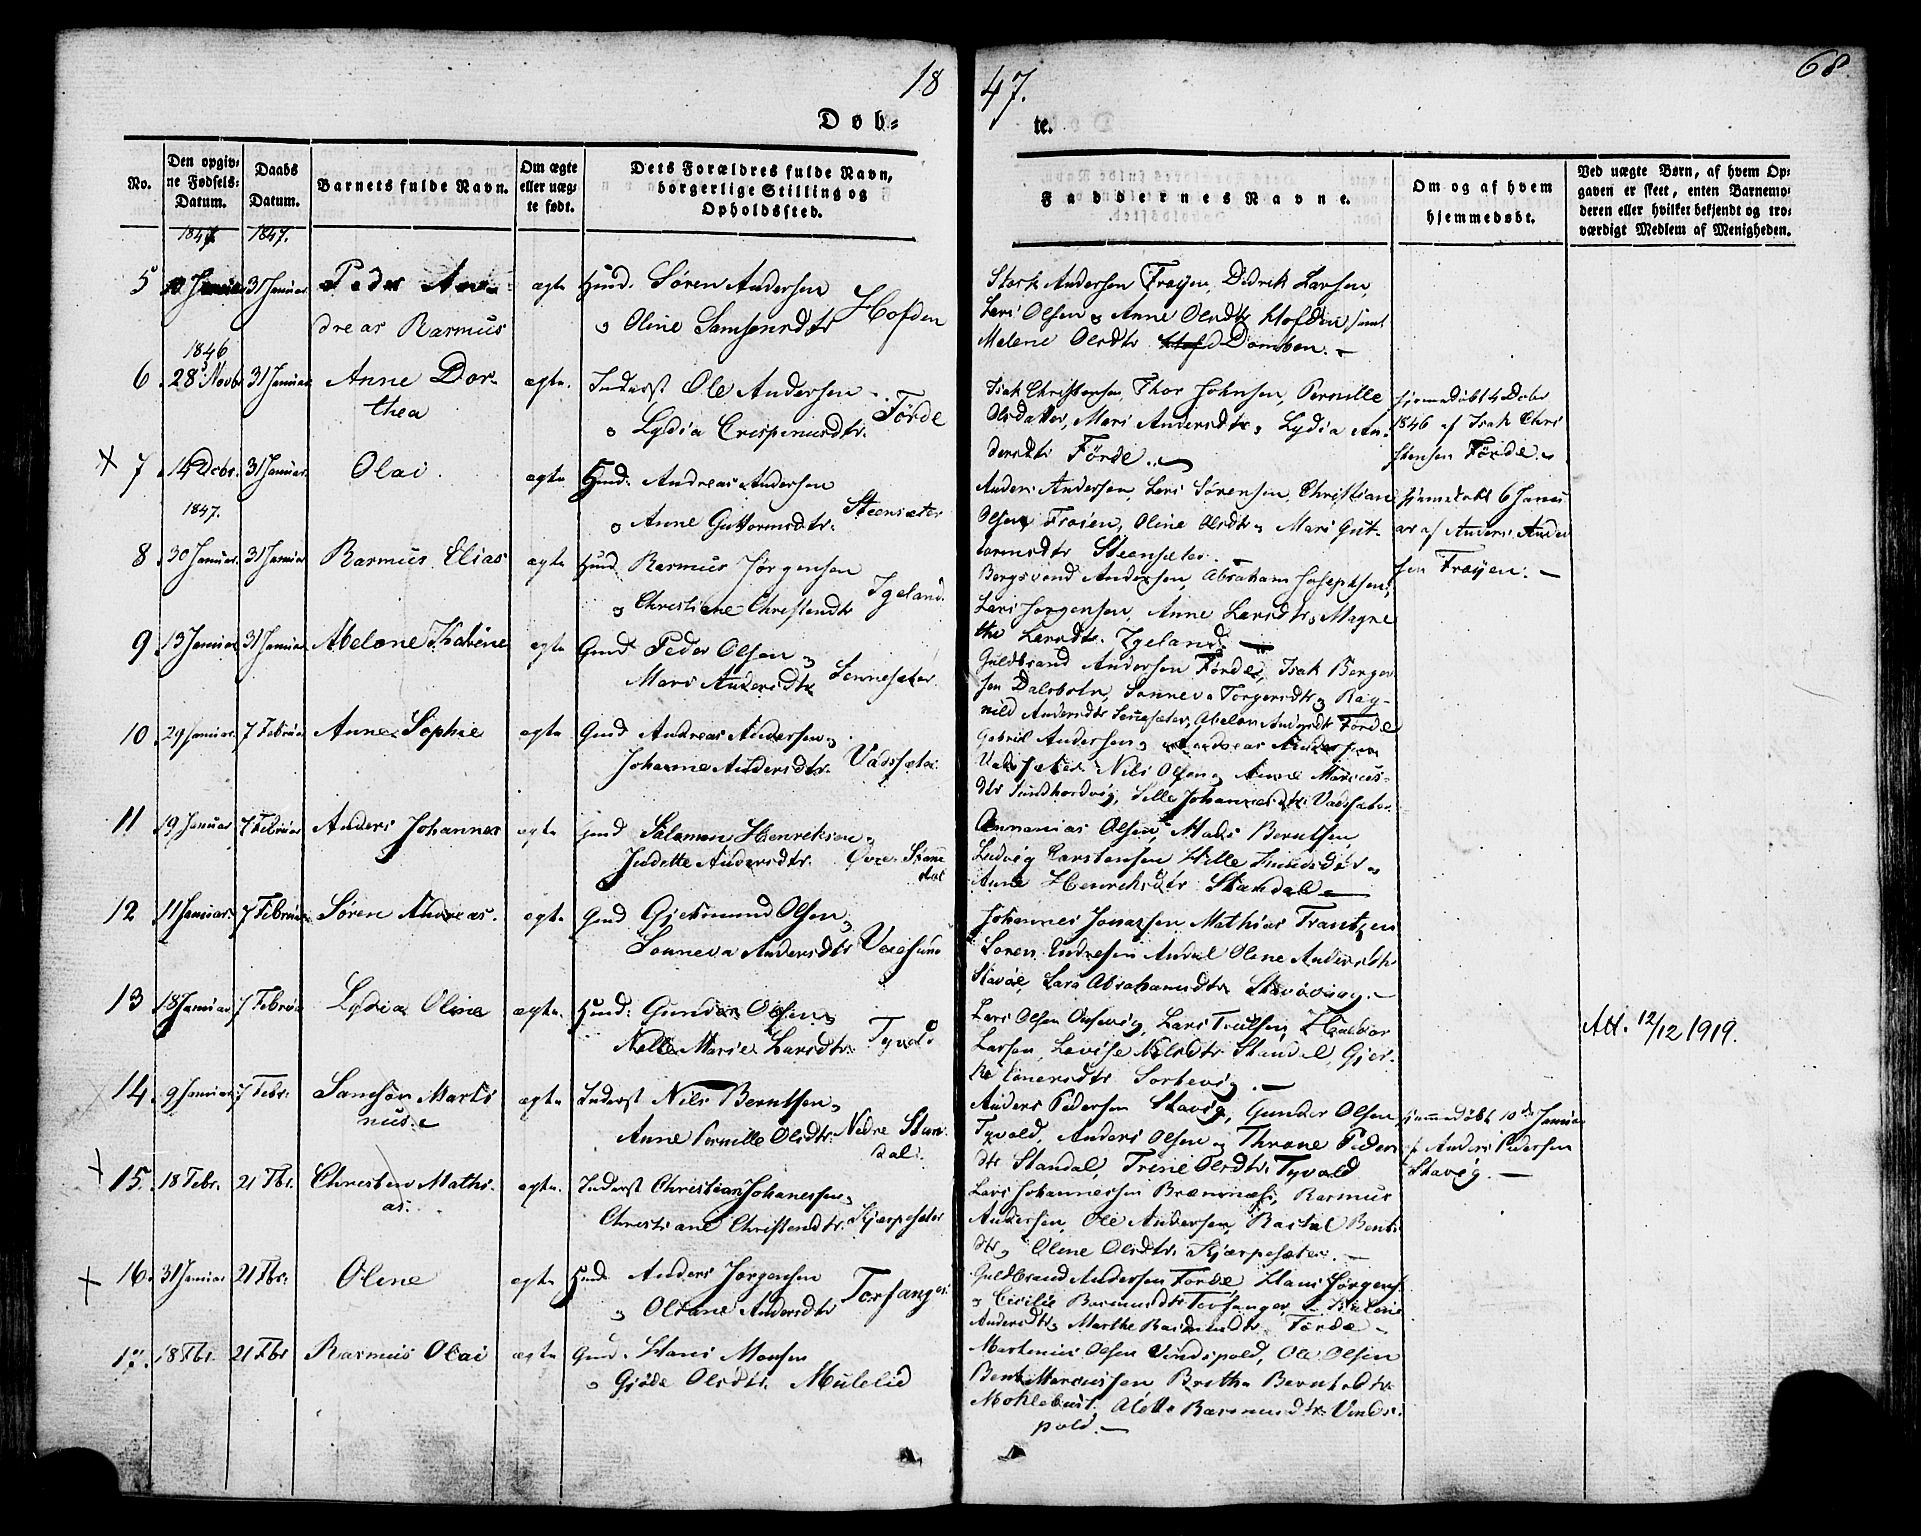 18
47.
68
Døb-
te.
No.
Den opgiv-
ne Fødsels-
Datum.
Daabs
Datum.
Barnets fulde Navn.
Om ægte
eller uæg-
te født.
Dets Forældres fulde Navn,
borgerlige Stilling og
Opholdssted.
Faddernes Navne.
Om og af hvem
hjemmedøbt.
Ved uægte Børn, af hvem Op-
gaven er skeet, enten Barnemo-
deren eller hvilket bekjendt og tro-
værdigt Medlem af Menigheden.
1847
1847.
5 31 Januar Peder An-
dreas Rasmus
ægte Huusd. Søren Andersen
Oline Samsonsdtr Hofden
Andersen Frøyen, Didrik Larsen,
Lars Olsen og Anne Olsdtr Hofden samt
Malene Olsdtr Domben.
1846
6. 28 Novbr 31 Januar Anne Dor-
thea
ægte. Inderst Ole Andersen
Lydia Crispinusdtr. Førde
Isak Christensen, Thor Johnsen, Pernille
Olsdatter, Mari Andersdtr, Lydia An-
dersdtr Førde.
hjemmedøbt 4 Decbr
1846 af Isak Chri
stensen Førde.
7 14 Decbr. 31 Januar. Olai.
ægte Huusd. Andreas Andersen
Anne Guttormsdtr. Steensæter
Anders Andersen, Lars Sørensen, Christian
Olsen Frøien, Oline Olsdtr og Mari Gut-
tormsdtr Steensæter.
hjemmedøbt 6 Janu
ar af Anders Ander
sen Frøyen.
1847.
8. 30 Januar. 31 Januar. Rasmus Elias
ægte Huusd Rasmus Jørgensen
Christiane Christensdtr Igeland.
Bergsvend Andersen, Abraham Josephsen,
Lars Jørgensen, Anne Larsdtr, Magne
the Larsdtr. Igeland.
9. 13 Januar 31 Januar Abelone Kathrine
ægte Gmd Peder Olsen
Mari Andersdtr Sennesæter
Guldbrand Andersen Førde, Isak Berger
sen Dalsbotn, Sonneva Torgersdtr, Rag-
nild Andersdtr Sennesæter, Abelon Andersdtr Førde
10. 29 Januar. 7 Februar Anne Sophie
ægte Gmd Andreas Andersen
Johanne Andersdtr. Vadsæter
Gabriel Andersen, Andreas Andersen
Vadsæter, Nils Olsen, Anne Marcus-
dtr Sundhordvig, Sille Johannesdtr Vadsæter
11. 19 Januar 7 Februar Anders Johannes
ægte Gmd Salamon Henriksen
Judette Andersdtr. Øvre Stan
dal
Annanias Olsen, Mads Berntsen
Ludvig Carstensen
Anne Henriksdtr Standal
12. 11 Januar. 7 Februar Søren Andreas.
ægte Gmd Gjermund Olsen
Sonneva Andersdtr
Johannes Jonassen Mathias Frantzen
Søren Andersen Olene Andersdtr
Lara Abrahamsdtr
13. 18 Januar 7 Februar Lydia Oline
ægte. Huusd. Gunder Olsen
Nelle Marie Larsdtr. Tyvold
Lars Olsen, Lars Trulsen, Haldor
Larsen, Lovise Nilsdtr Standal, Gjer-
Sørbevig.
Att. 12/12 1919.
14. 9 Januar 7 Febr. Samson Marti
nus.
ægte Inderst Nils Berntsen
Anne Pernille Olsdtr. Nedre Stan
dal.
Anders Pedersen Stavig, Gunder Olsen
Tyvold, Anders Olsen og Throne Peders
dtr Standal, Trine Olsdtr. Tyvold
hjemmedøbt 10de Januar
af Anders Pedersen
Stavig.
15. 18 Febr. 21 Fbr. Christen Mathi-
as.
ægte. Inderst Christian Johanessen
Christiane Christensdtr. Kjærpesæter
Lars Johannessen Bremnæs, Rasmus
Andersen, Ole Andersen, Rastal Bents
dtr, Oline Olsdtr. Kjærpesæter.
16. 31 Januar 21 Fbr. Oline
ægte Huusd. Anders Jørgensen
Oliane Andersdtr Torfanger
Guldbrand Andersen Førde, Hans Jørgens.
Cicilie Rasmusdtr Torfanger,
Andersdtr, Marthe Rasmusdtr Førde
17. 18 Fbr. 21 Fbr Rasmus Olai
ægte Gmd. Hans Monsen
Gjøde Olsdtr. Mulelid
Martenius Olsen Vindspold, Ole Olsen
Bent Marcussen Brithe Berntsdtr
Moklebust. Alette Rasmusdtr. Vinds-
pold.